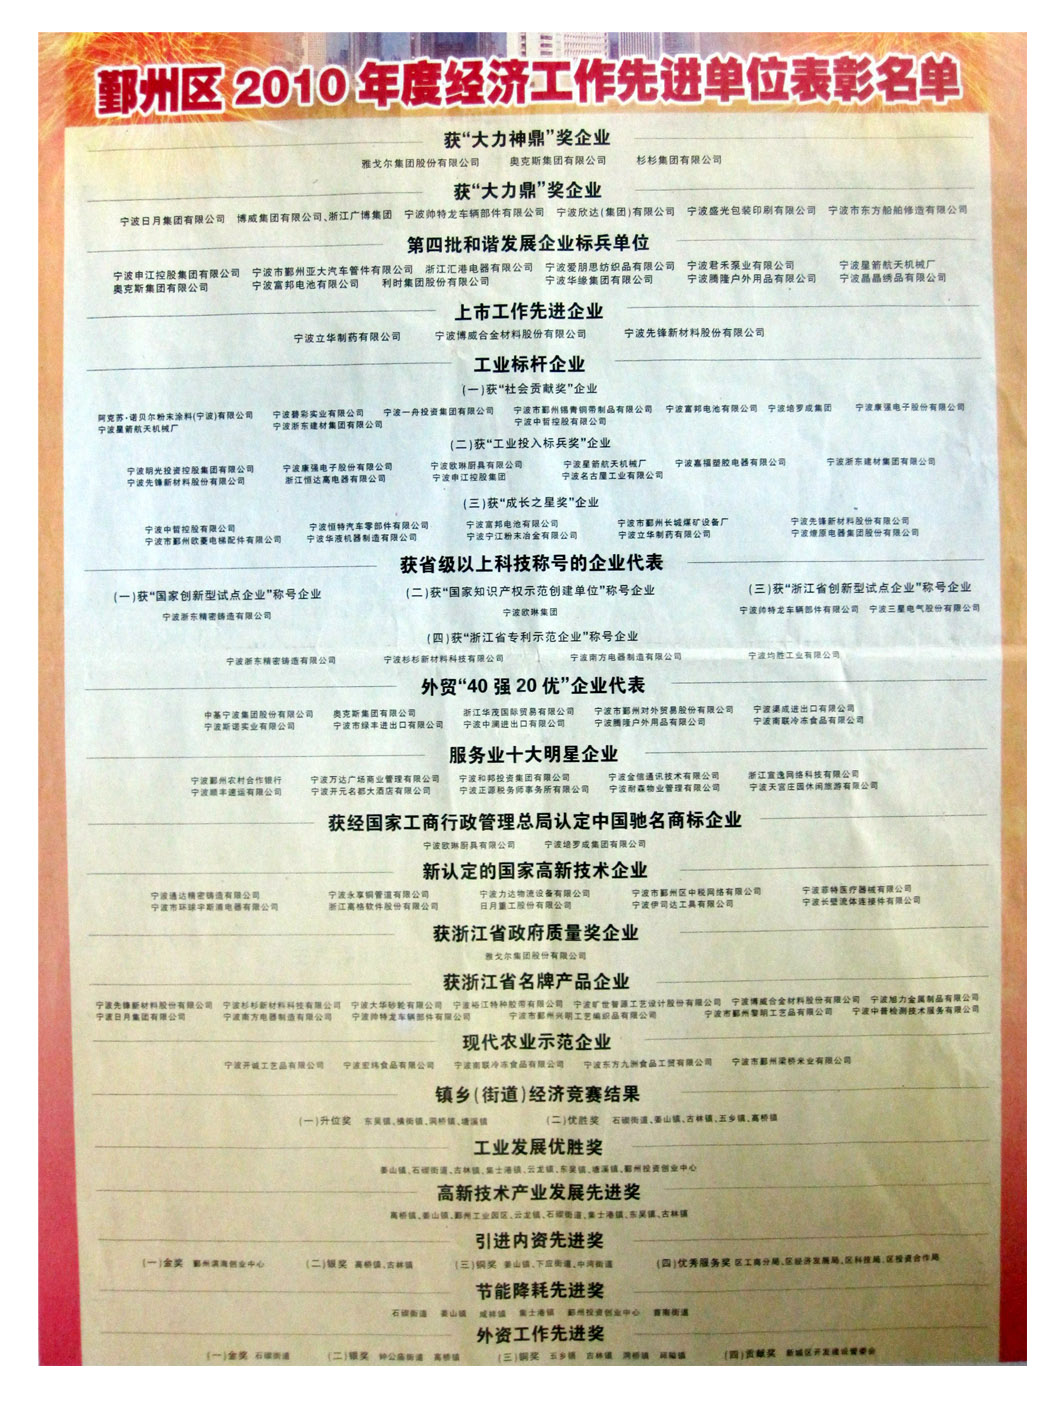 鄞州区 2010 年度经济工作先进单位表彰名单
获“大力神鼎”奖企业
雅戈尔集团股份有限公司 奥克斯集团有限公司 杉杉集团有限公司
获“大力鼎”奖企业
宁波日月集团有限公司 博威集团有限公司、浙江广博集团 宁波帅特龙车辆部件有限公司 宁波欣达(集团)有限公司 宁波盛光包装印刷有限公司 宁波市东方船舶修造有限公司
第四批和谐发展企业标兵单位
宁波申江控股集团有限公司 宁波市鄞州亚大汽车管件有限公司 浙江汇港电器有限公司 宁波爱朋思纺织品有限公司 宁波君禾泵业有限公司 宁波星箭航天机械厂
奥克斯集团有限公司 宁波富邦电池有限公司 利时集团股份有限公司 宁波华缘集团有限公司 宁波腾隆户外用品有限公司 宁波晶晶绣品有限公司
上市工作先进企业
宁波立华制药有限公司 宁波博威合金材料股份有限公司 宁波先锋新材料股份有限公司
工业标杆企业
(一)获“社会贡献奖”企业
阿克苏·诺贝尔粉末涂料(宁波)有限公司 宁波碧彩实业有限公司 宁波一舟投资集团有限公司 宁波市鄞州锡青铜带制品有限公司 宁波富邦电池有限公司 宁波培罗成集团 宁波康强电子股份有限公司
宁波星箭航天机械厂 宁波浙东建材集团有限公司 宁波中哲控股有限公司
(二)获“工业投入标兵奖”企业
宁波明光投资控股集团有限公司 宁波康强电子股份有限公司 宁波欧琳厨具有限公司 宁波星箭航天机械厂 宁波嘉福塑胶电器有限公司 宁波浙东建材集团有限公司
宁波先锋新材料股份有限公司 浙江恒达高电器有限公司 宁波申江控股集团 宁波名古屋工业有限公司
(三)获“成长之星奖”企业
宁波中哲控股有限公司 宁波恒特汽车零部件有限公司 宁波富邦电池有限公司 宁波市鄞州长城煤矿设备厂 宁波先锋新材料股份有限公司
宁波市鄞州欧菱电梯配件有限公司 宁波华液机器制造有限公司 宁波宁江粉末冶金有限公司 宁波立华制药有限公司 宁波燎原电器集团股份有限公司
获省级以上科技称号的企业代表
(一)获“国家创新型试点企业”称号企业 (二)获“国家知识产权示范创建单位”称号企业 (三)获“浙江省创新型试点企业”称号企业
宁波浙东精密铸造有限公司 宁波欧琳集团 宁波帅特龙车辆部件有限公司 宁波三星电气股份有限公司
(四)获“浙江省专利示范企业”称号企业
宁波浙东精密铸造有限公司 宁波杉杉新材料科技有限公司 宁波南方电器制造有限公司 宁波均胜工业有限公司
外贸“40 强 20 优”企业代表
中基宁波集团股份有限公司 奥克斯集团有限公司 浙江华茂国际贸易有限公司 宁波市鄞州对外贸易股份有限公司 宁波渠成进出口有限公司
宁波斯诺实业有限公司 宁波市绿丰进出口有限公司 宁波中澜进出口有限公司 宁波腾隆户外用品有限公司 宁波南联冷冻食品有限公司
服务业十大明星企业
宁波鄞州农村合作银行 宁波万达广场商业管理有限公司 宁波和邦投资集团有限公司 宁波金信通讯技术有限公司 浙江宣逸网络科技有限公司
宁波顺丰速运有限公司 宁波开元名都大酒店有限公司 宁波正源税务师事务所有限公司 宁波耐森物业管理有限公司 宁波天宫庄园休闲旅游有限公司
获经国家工商行政管理总局认定中国驰名商标企业
宁波欧琳厨具有限公司 宁波培罗成集团有限公司
新认定的国家高新技术企业
宁波通达精密铸造有限公司 宁波永享铜管道有限公司 宁波力达物流设备有限公司 宁波市鄞州区中税网络有限公司 宁波菲特医疗器械有限公司
宁波市环球宇斯浦电器有限公司 浙江高格软件股份有限公司 日月重工股份有限公司 宁波伊司达工具有限公司 宁波长壁流体连接件有限公司
获浙江省政府质量奖企业
雅戈尔集团股份有限公司
获浙江省名牌产品企业
宁波先锋新材料股份有限公司 宁波杉杉新材料科技有限公司 宁波大华砂轮有限公司 宁波裕江特种胶带有限公司 宁波旷世智源工艺设计股份有限公司 宁波博威合金材料股份有限公司 宁波旭力金属制品有限公司
宁波日月集团有限公司 宁波南方电器制造有限公司 宁波帅特龙车辆部件有限公司 宁波市鄞州兴明工艺编织品有限公司 宁波市鄞州黎明工艺品有限公司 宁波中普检测技术服务有限公司
现代农业示范企业
宁波开诚工艺品有限公司 宁波宏纬食品有限公司 宁波南联冷冻食品有限公司 宁波东方九洲食品工贸有限公司 宁波市鄞州梁桥米业有限公司
镇乡(街道)经济竞赛结果
(一)升位奖 东吴镇、横街镇、洞桥镇、塘溪镇 (二)优胜奖 石碶街道、姜山镇、古林镇、五乡镇、高桥镇
工业发展优胜奖
姜山镇、石碶街道、古林镇、集士港镇、云龙镇、东吴镇、塘溪镇、鄞州投资创业中心
高新技术产业发展先进奖
高桥镇、姜山镇、鄞州工业园区、云龙镇、石碶街道、集士港镇、东吴镇、古林镇
引进内资先进奖
(一)金奖 鄞州滨海创业中心 (二)银奖 高桥镇、古林镇 (三)铜奖 姜山镇、下应街道、中河街道 (四)优秀服务奖 区工商分局、区经济发展局、区科技局、区投资合作局
节能降耗先进奖
石碶街道 姜山镇 咸祥镇 集士港镇 鄞州投资创业中心 首南街道
外资工作先进奖
(一)金奖 石碶街道 (二)银奖 钟公庙街道 高桥镇 (三)铜奖 五乡镇 古林镇 洞桥镇 邱隘镇 (四)贡献奖 新城区开发建设管委会